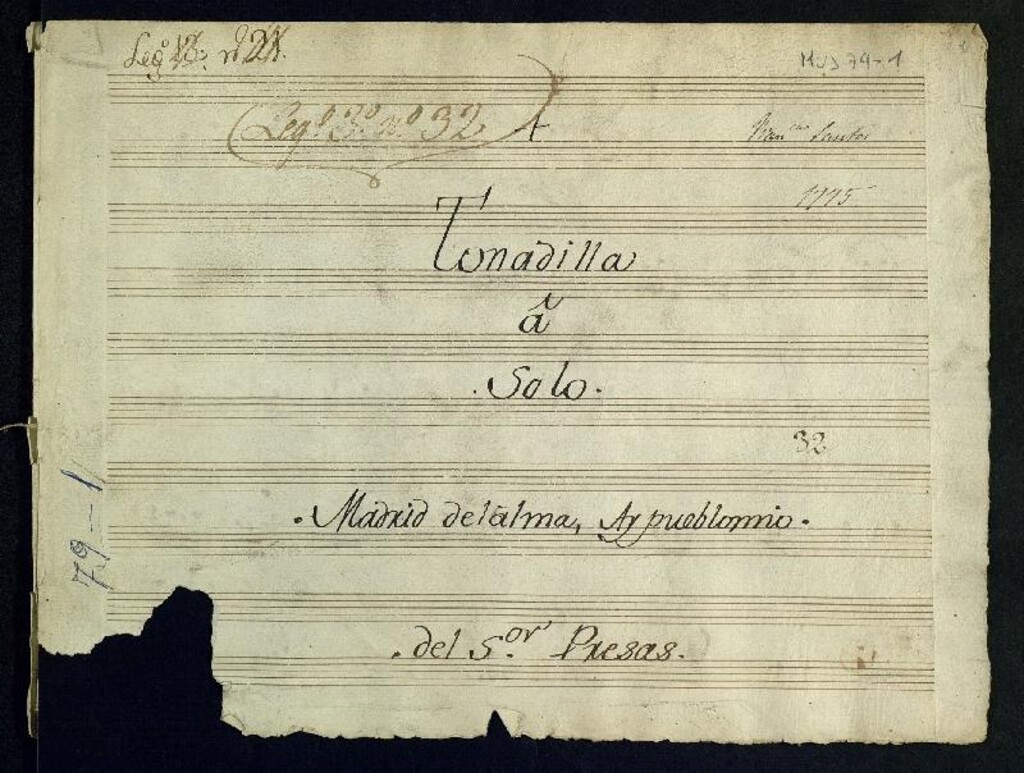 Legº 13: nº 21.
MUS 79-1
Legº 3º nº 32
1775
Tonadilla
â
. Solo .
32
. Madrid del alma, Ay pueblo mio .
79-1
. del S.or Presas .